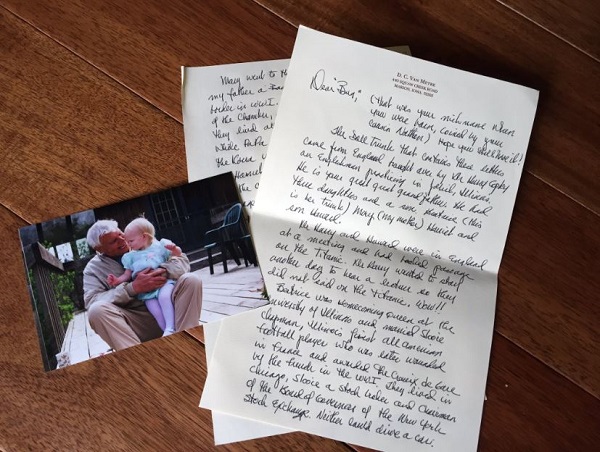 Mary went to
my father a
broker in court.
of the Chamber,
They lived at
While PaPa
the Korea
Hamel
D. C. VAN METRE
SQUAW CREEK ROAD
MARION, IOWA 52302
Dear Bun,
(that was your nickname when
you were born, coined by your
cousin Nathan) Hope you still love it!
The Doll Trunk that contains these letters
came from England brought over by the Henry
an Englishman practicing in
He is your great great grandfather. He had
three daughters and a son Beatrice (this
is her trunk) Mary (my mother) Harriet and
son Howard.
Henry and Howard were in England
at a meeting and had booked passage
on the Titanic. Henry wanted to stay
another day to hear a lecture so they
did not sail on the Titanic. Wow!!
Beatrice was Homecoming queen at the
University of Illinois and married Shorie
Chapman, Illinois' first all american
football player who was later wounded
in France and awarded The Croix de Gare
by the French in the . They lived in
Chicago, a stock broker and Chairman
of the Board of Governors of the New York
Stock Exchange. Neither could drive a car.